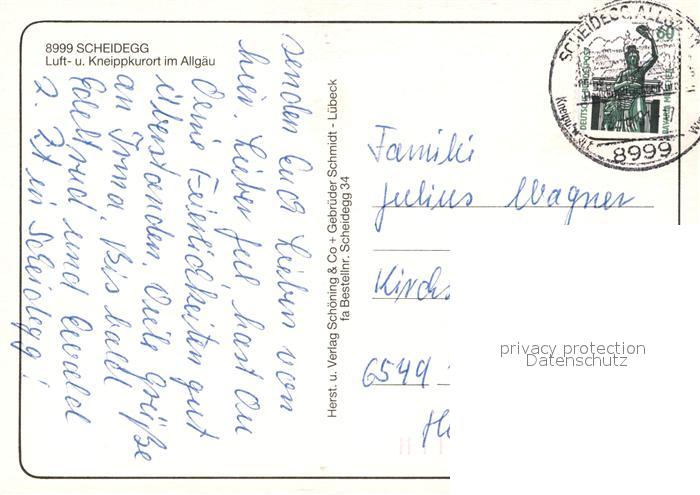 8999 SCHEIDEGG
Luft- u. Kneippkurort im Allgäu
senden Euch Lieben von
hier. Lieber Jul, hast Du
Deine Feierlichkeiten gut
überstanden. Viele Grüße
an Irma. Bis bald
Edeltrud und Ewald
z. Zt in Scheidegg!
Herst. u. Verlag Schöning & Co + Gebrüder Schmidt - Lübeck
fa Bestellnr. Scheidegg 34
SCHEIDEGG, ALLGÄU
8999
60
DEUTSCHE BUNDESPOST
BAVARIA MÜNCHEN
Familie
Julius Wagner
Kirchs
6549
privacy protection
Datenschutz